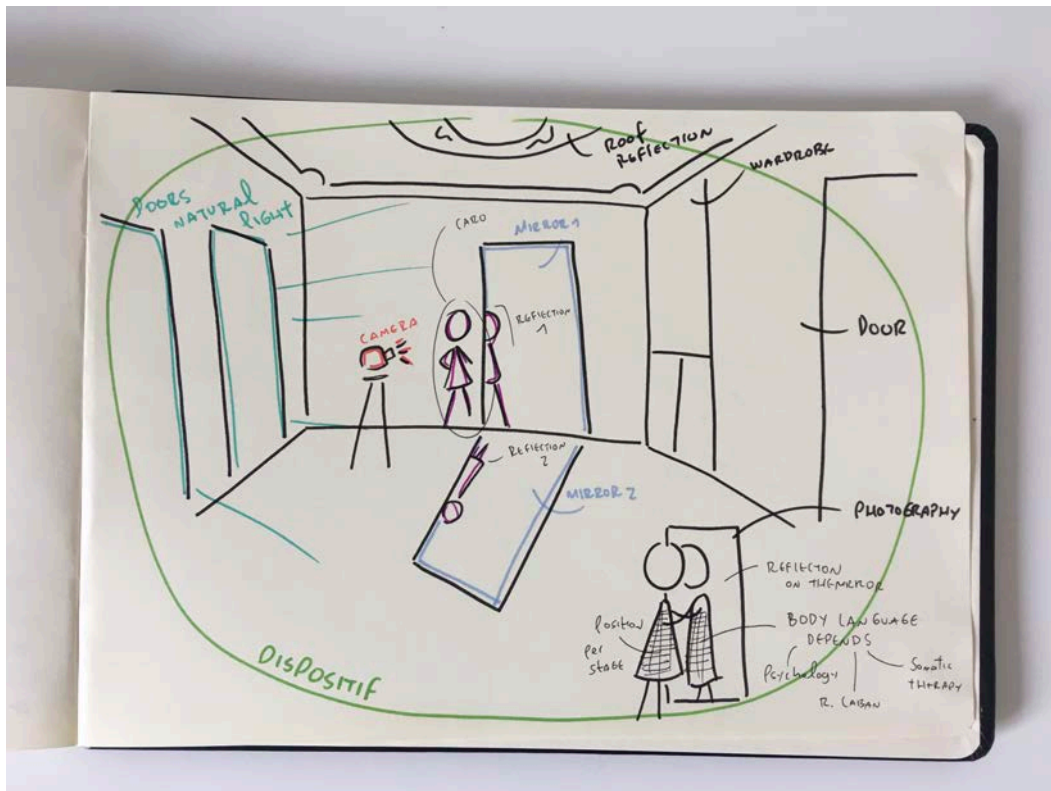 ROOF
REFLECTION
WARDROBE
DOORS
NATURAL
LIGHT
CARO
MIRROR 1
REFLECTION
1
CAMERA
DOOR
REFLECTION
2
MIRROR 2
PHOTOGRAPHY
REFLECTION
ON THE MIRROR
POSITION
PER
STAGE
BODY LANGUAGE
DEPENDS
Psychology
R. LABAN
Somatic
THERAPY
DISPOSITIF